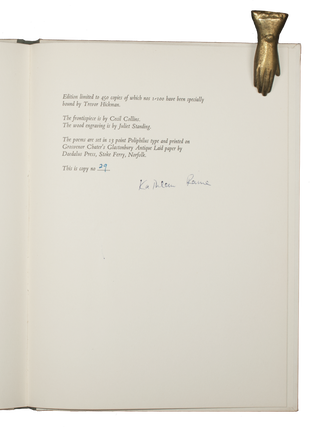 Edition limited to 450 copies of which nos 1-100 have been specially
bound by Trevor Hickman.
The frontispiece is by Cecil Collins.
The wood engraving is by Juliet Standing.
The poems are set in 13 point Poliphilus type and printed on
Grosvenor Chater's Glastonbury Antique Laid paper by
Daedalus Press, Stoke Ferry, Norfolk.
This is copy no 29
Kathleen Raine